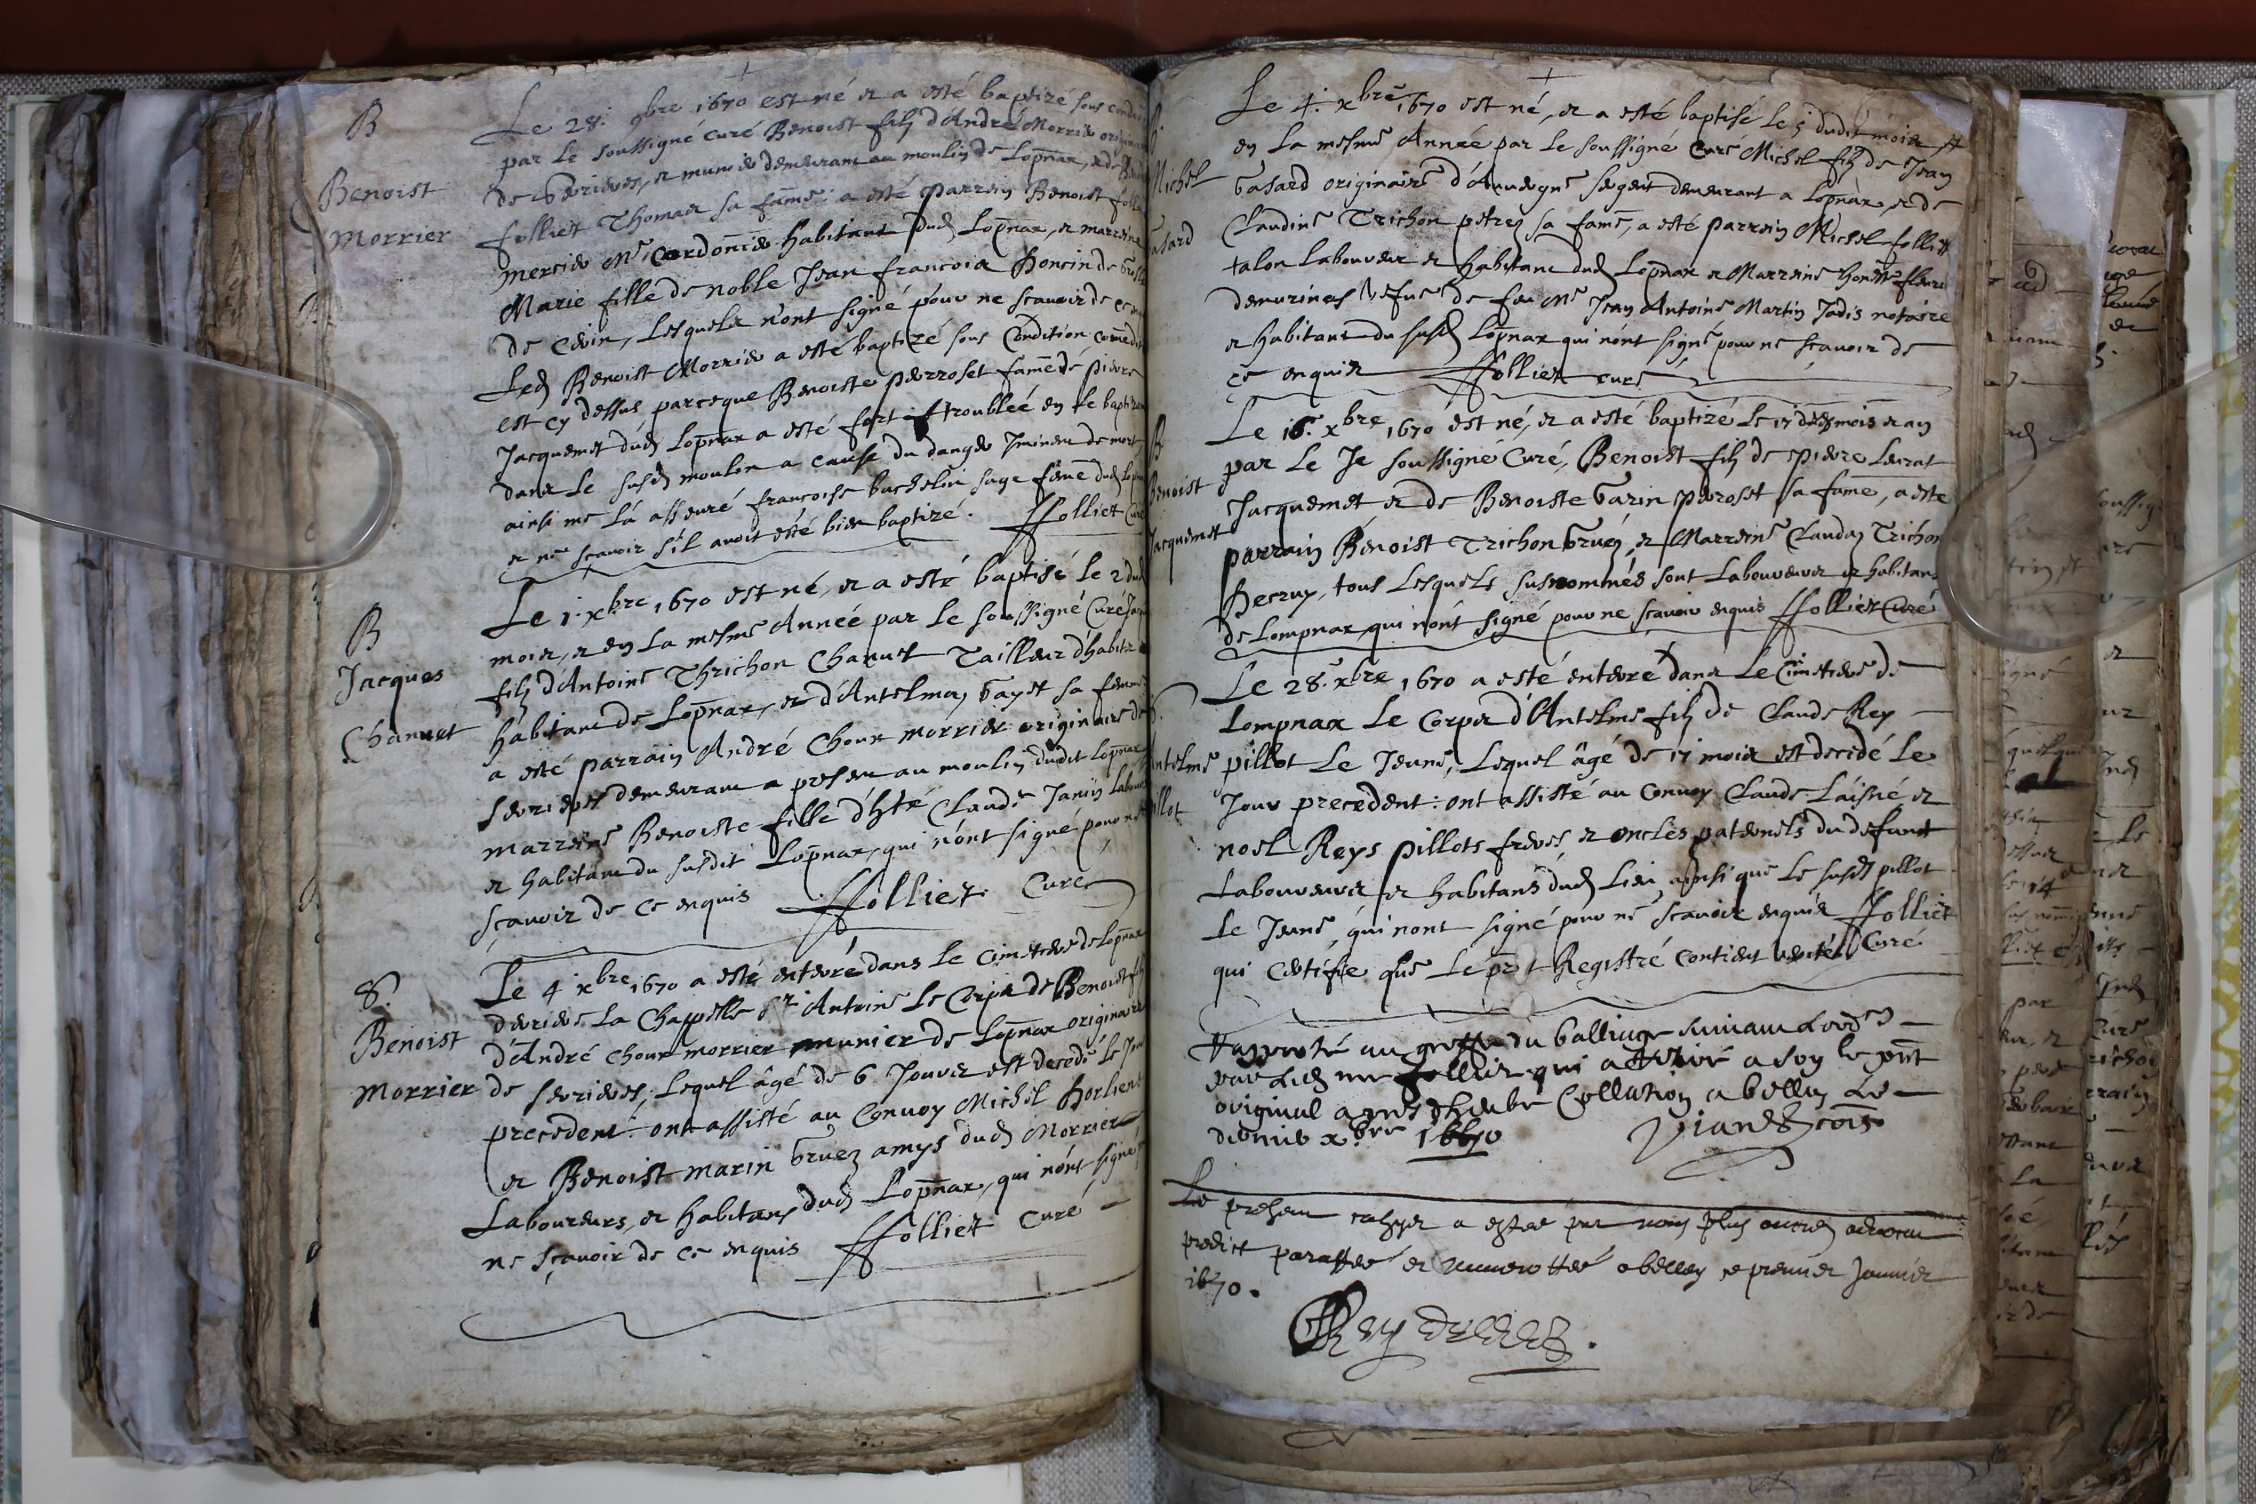 B
Benoist
Morrier
Le 28. 9bre 1670 est né et a esté baptizé sous condi
par Le soussigné curé Benoist filz d'André Morrier
de Sevrieres, et munier demeurant au moulin de Lopnax, et de
folliet Thomas sa fame: a esté parrain Benoist
mercier Me Cordonier habitant dud Lopnax, et marreine
Marie fille de noble Jean francois honcin de
de Cevin, Lesquels n'ont signé pour ne scavoir de ce
Led Benoist Morrier a esté baptizé sous Condition come
est cy dessus parceque Benoiste perroset fame de pierre
Jacquemet dud Lopnax a esté fort troubleé en le
dans Le susd moulin a cause du danger Iminent de mort
ainsi me l'a asseuré francoise bachelin sage feme dud
et ne scavoir s'il avoit esté bien baptizé. ffolliet Curé
B
Jacques
Chanuet
Le 1. xbre 1670 est né, et a esté baptisé le 2 dud
mois, et en La mesme Anneé par le soussigné Curé
filz d'Antoine Thrichon Chanuet Tailleur d'habitz
habitant de Lopnax, et d'Antelma Gayet sa feme
a esté parrain André Chour morrier originaire de
sevrieres demeurant a present au moulin dudit Lopnax
marreine Benoiste fille d'hte Claude Janin
et habitant du susdit Lopnax, qui n'ont signé pour ne
scavoir de ce enquis ffolliet Curé
S.
Benoist
Morrier
Le 4 xbre 1670 a esté enterré dans le Cimetiere de Lopnax
derriere La Chapelle St Antoine Le Corps de Benoist
d'André Chour morrier munier de Lopnax originaire
de sevrieres, Lequel âgé de 6 Jours est decedé le
precedent: ont assisté au Convoy Michel horlient
et Benoist marin Gruez amys dud Morrier
Laboureurs, et habitans dud Lopnax, qui n'ont signé
ne scavoir de ce enquis ffolliet Curé
Michel
Gasard
Le 4. xbre 1670 est né, et a esté baptisé le 5 dudit mois et
en La mesme Année par le soussigné Curé Michel filz de Jean
Gasard originaire d'Auvergne sergent demeurant a Lopnax, et de
Claudine Trichon petrez sa fame, a esté parrain Michel folliet
talon Laboureur et habitant dud Lopnax et Marreine honeste
vefve de feu Me Jean Antoine Martin Jadis notaire
et habitant du susd Lopnax qui n'ont signé pour ne scavoir de
ce enquis ffolliet curé
B
Benoist
Jacquemet
Le 16. xbre 1670 est né, et a esté baptizé Le 17 desd mois et an
par Le Je soussigné Curé, Benoist filz de pierre Levrat
Jacquemet et de Benoiste Garin perroset sa fame, a esté
parrain Benoist Trichon Gruez, et Marreine Clauda Trichon
hecruy, tous Lesquels susnommés sont Laboureurs et habitans
de Lompnax, qui n'ont signé pour ne scavoir enquis ffolliet Curé
Antelme
pillot
Le 28. xbre 1670 a esté enterré dans Le Cimetiere de
Lompnax Le Corps d'Antelme filz de Claude Rey
pillot Le Jeune, Lequel âgé de 17 mois est decedé Le
Jour precedent: ont assisté au Convoy Claude L'aisné et
noel Reys pillots freres et oncles paternels du defunct
Laboureurs et habitans dud Lieu, ainsi que Le susd pillot
Le Jeune, qui n'ont signé pour ne scavoir enquis ffolliet
qui Certifie que Le pnt Registre Contient verité Curé
Rapporté au greffe du balliage suivant
par Led mre folliet qui a retiré a soy le pnt
original apres dheube Collation a belley Le
dernier xbre 1670
Le present cahyer a esté par nous plus ancien advocat
predict paraffé et numerotté a belley ce premier Janvier
1670.